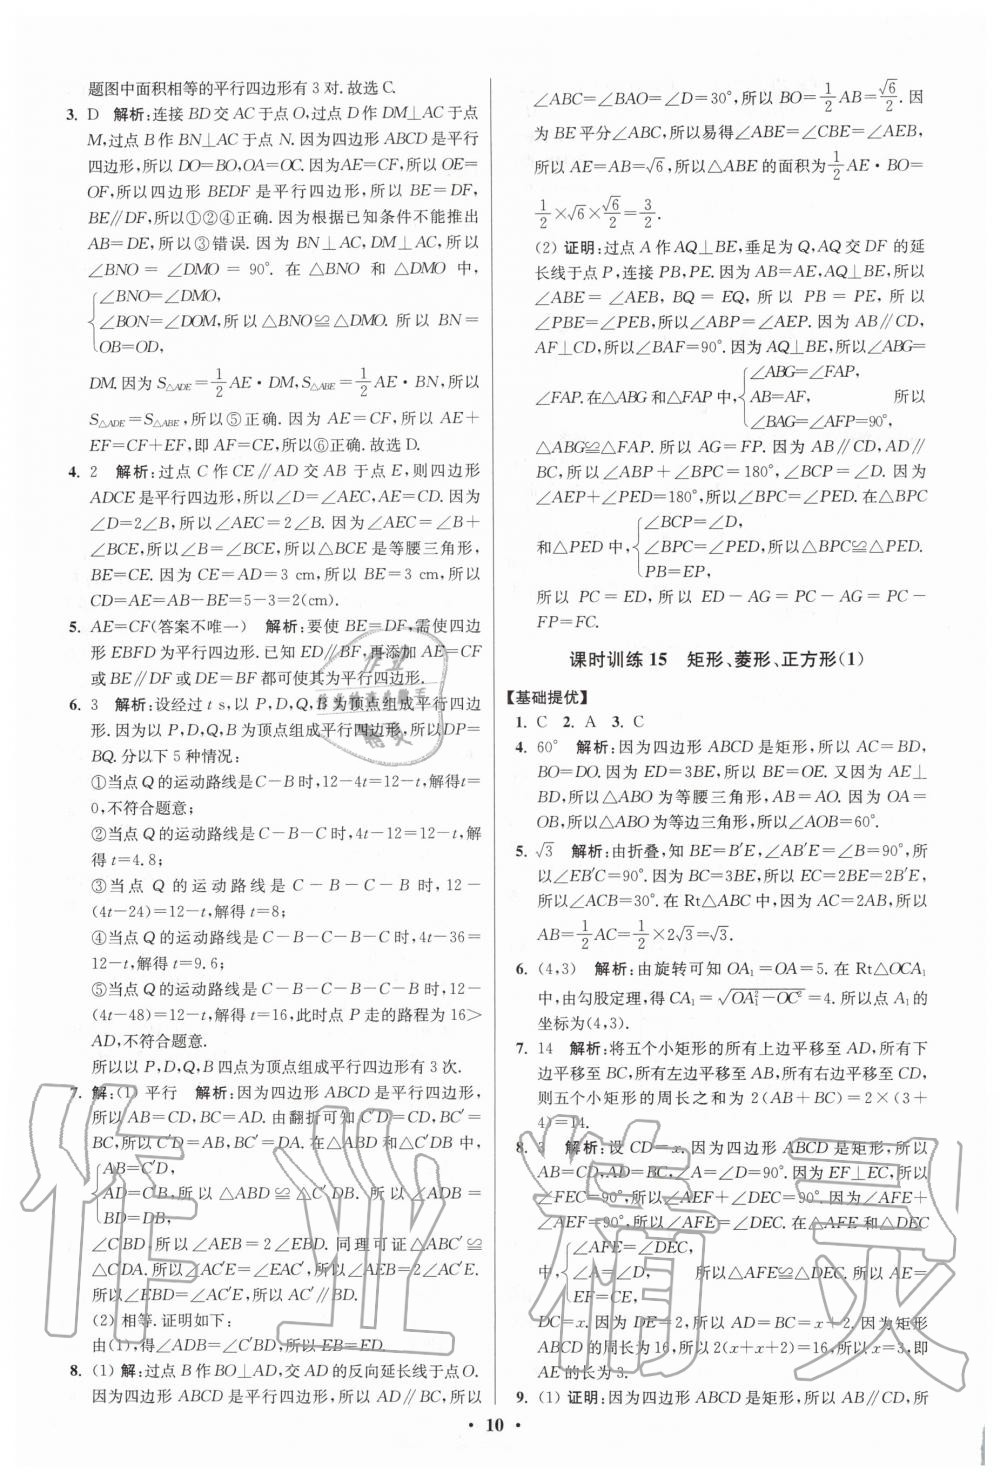 题图中面积相等的平行四边形有 3 对. 故选 C.
3. D 解析:连接 BD 交 AC 于点 O,过点 D 作 DM⊥AC 于点
M,过点 B 作 BN⊥AC 于点 N. 因为四边形 ABCD 是平行
四边形,所以 DO=BO,OA=OC. 因为 AE=CF,所以 OE=
OF,所以四边形 BEDF 是平行四边形,所以 BE=DF,
BE∥DF,所以①②④正确. 因为根据已知条件不能推出
AB=DE,所以③错误. 因为 BN⊥AC,DM⊥AC,所以
∠BNO = ∠DMO = 90°. 在 △BNO 和 △DMO 中,
∠BNO=∠DMO,
∠BON=∠DOM,所以△BNO≌△DMO. 所以 BN=
OB=OD,
DM. 因为 S△ADE=1/2 AE·DM,S△ABE=1/2 AE·BN,所以
S△ADE=S△ABE,所以⑤正确. 因为 AE=CF,所以 AE+
EF=CF+EF,即 AF=CE,所以⑥正确. 故选 D.
4. 2 解析:过点 C 作 CE∥AD 交 AB 于点 E,则四边形
ADCE 是平行四边形,所以∠D=∠AEC,AE=CD. 因为
∠D=2∠B,所以∠AEC=2∠B. 因为∠AEC=∠B+
∠BCE,所以∠B=∠BCE,所以△BCE 是等腰三角形,
BE=CE. 因为 CE=AD=3 cm,所以 BE=3 cm,所以
CD=AE=AB-BE=5-3=2(cm).
5. AE=CF(答案不唯一) 解析:要使 BE=DF,需使四边
形 EBFD 为平行四边形. 已知 ED∥BF,再添加 AE=CF
或 BE∥DF 或 DE=BF 都可使其为平行四边形.
6. 3 解析:设经过 t s,以 P,D,Q,B 为顶点组成平行四边
形. 因为以 P,D,Q,B 为顶点组成平行四边形,所以DP=
BQ. 分以下 5 种情况:
①当点 Q 的运动路线是 C-B 时,12-4t=12-t,解得t=
0,不符合题意;
②当点 Q 的运动路线是 C-B-C 时,4t-12=12-t,解
得 t=4.8;
③当点 Q 的运动路线是 C-B-C-B 时,12-
(4t-24)=12-t,解得 t=8;
④当点 Q 的运动路线是 C-B-C-B-C 时,4t-36=
12-t,解得 t=9.6;
⑤当点 Q 的运动路线是 C-B-C-B-C-B 时,12-
(4t-48)=12-t,解得 t=16,此时点 P 走的路程为 16>
AD,不符合题意.
所以以 P,D,Q,B 四点为顶点组成平行四边形有 3 次.
7. 解:(1) 平行 解析:因为四边形 ABCD 是平行四边形,
所以 AB=CD,BC=AD. 由翻折可知 C′D=CD,BC′=
BC,所以 C′D=AB,BC′=DA. 在△ABD 和△C′DB 中,
AB=C′D,
AD=C′B,所以 △ABD≌△C′DB. 所以 ∠ADB=
BD=DB,
∠C′BD,所以∠AEB=2∠EBD. 同理可证△ABC′≌
△C′DA. 所以∠AC′E=∠EAC′,所以∠AEB=2∠AC′E.
所以∠EBD=∠AC′E,所以 AC′∥BD.
(2) 相等. 证明如下:
由(1),得∠ADB=∠C′BD,所以 EB=ED.
8. (1) 解:过点 B 作 BO⊥AD,交 AD 的反向延长线于点 O.
因为四边形 ABCD 是平行四边形,所以 AD∥BC,所以
∠ABC=∠BAO=∠D=30°,所以 BO=1/2 AB=√6/2. 因
为 BE 平分∠ABC,所以易得∠ABE=∠CBE=∠AEB,
所以 AE=AB=√6,所以△ABE 的面积为 1/2 AE·BO=
1/2×√6×√6/2=3/2.
(2) 证明:过点 A 作 AQ⊥BE,垂足为 Q,AQ 交 DF 的延
长线于点 P,连接 PB,PE. 因为 AB=AE,AQ⊥BE,所以
∠ABE=∠AEB,BQ=EQ,所以 PB=PE,所以
∠PBE=∠PEB,所以∠ABP=∠AEP. 因为 AB∥CD,
AF⊥CD,所以∠BAF=90°. 因为 AQ⊥BE,所以∠ABG=
∠ABG=∠FAP,
∠FAP. 在△ABG 和△FAP 中, AB=AF, 所以
∠BAG=∠AFP=90°,
△ABG≌△FAP. 所以 AG=FP. 因为 AB∥CD,AD∥
BC,所以∠ABP+∠BPC=180°,∠BCP=∠D. 因为
∠AEP+∠PED=180°,所以∠BPC=∠PED. 在△BPC
∠BCP=∠D,
和△PED 中, ∠BPC=∠PED,所以△BPC≌△PED.
PB=EP,
所以 PC=ED,所以 ED-AG=PC-AG=PC-
FP=FC.
课时训练 15 矩形、菱形、正方形(1)
【基础提优】
1. C 2. A 3. C
4. 60° 解析:因为四边形 ABCD 是矩形,所以 AC=BD,
BO=DO. 因为 ED=3BE,所以 BE=OE. 又因为 AE⊥
BD,所以△ABO 为等腰三角形,AB=AO. 因为 OA=
OB,所以△ABO 为等边三角形,所以∠AOB=60°.
5. √3 解析:由折叠,知 BE=B′E,∠AB′E=∠B=90°,所
以∠EB′C=90°. 因为 BC=3BE,所以 EC=2BE=2B′E,
所以∠ACB=30°. 在 Rt△ABC 中,因为 AC=2AB,所以
AB=1/2 AC=1/2×2√3=√3.
6. (4,3) 解析:由旋转可知 OA₁=OA=5. 在 Rt△OCA₁
中,由勾股定理,得 CA₁=√(OA₁²-OC²)=4. 所以点 A₁ 的
坐标为(4,3).
7. 14 解析:将五个小矩形的所有上边平移至 AD,所有下
边平移至 BC,所有左边平移至 AB,所有右边平移至 CD,
则五个小矩形的周长之和为 2(AB+BC)=2×(3+
4)=14.
8. 3 解析:设 CD=x. 因为四边形 ABCD 是矩形,所以
AB=CD,AD=BC,∠A=∠D=90°. 因为 EF⊥EC,所以
∠FEC=90°,所以∠AEF+∠DEC=90°. 因为∠AFE+
∠AEF=90°,所以∠AFE=∠DEC. 在△AFE 和△DEC
∠AFE=∠DEC,
中, ∠A=∠D, 所以△AFE≌△DEC. 所以 AE=
EF=CE,
DC=x. 因为 DE=2,所以 AD=BC=x+2. 因为矩形
ABCD 的周长为 16,所以 2(x+x+2)=16,所以 x=3,即
AE 的长为 3.
9. (1) 证明:因为四边形 ABCD 是矩形,所以 AB∥CD,所
· 10 ·
作业精灵